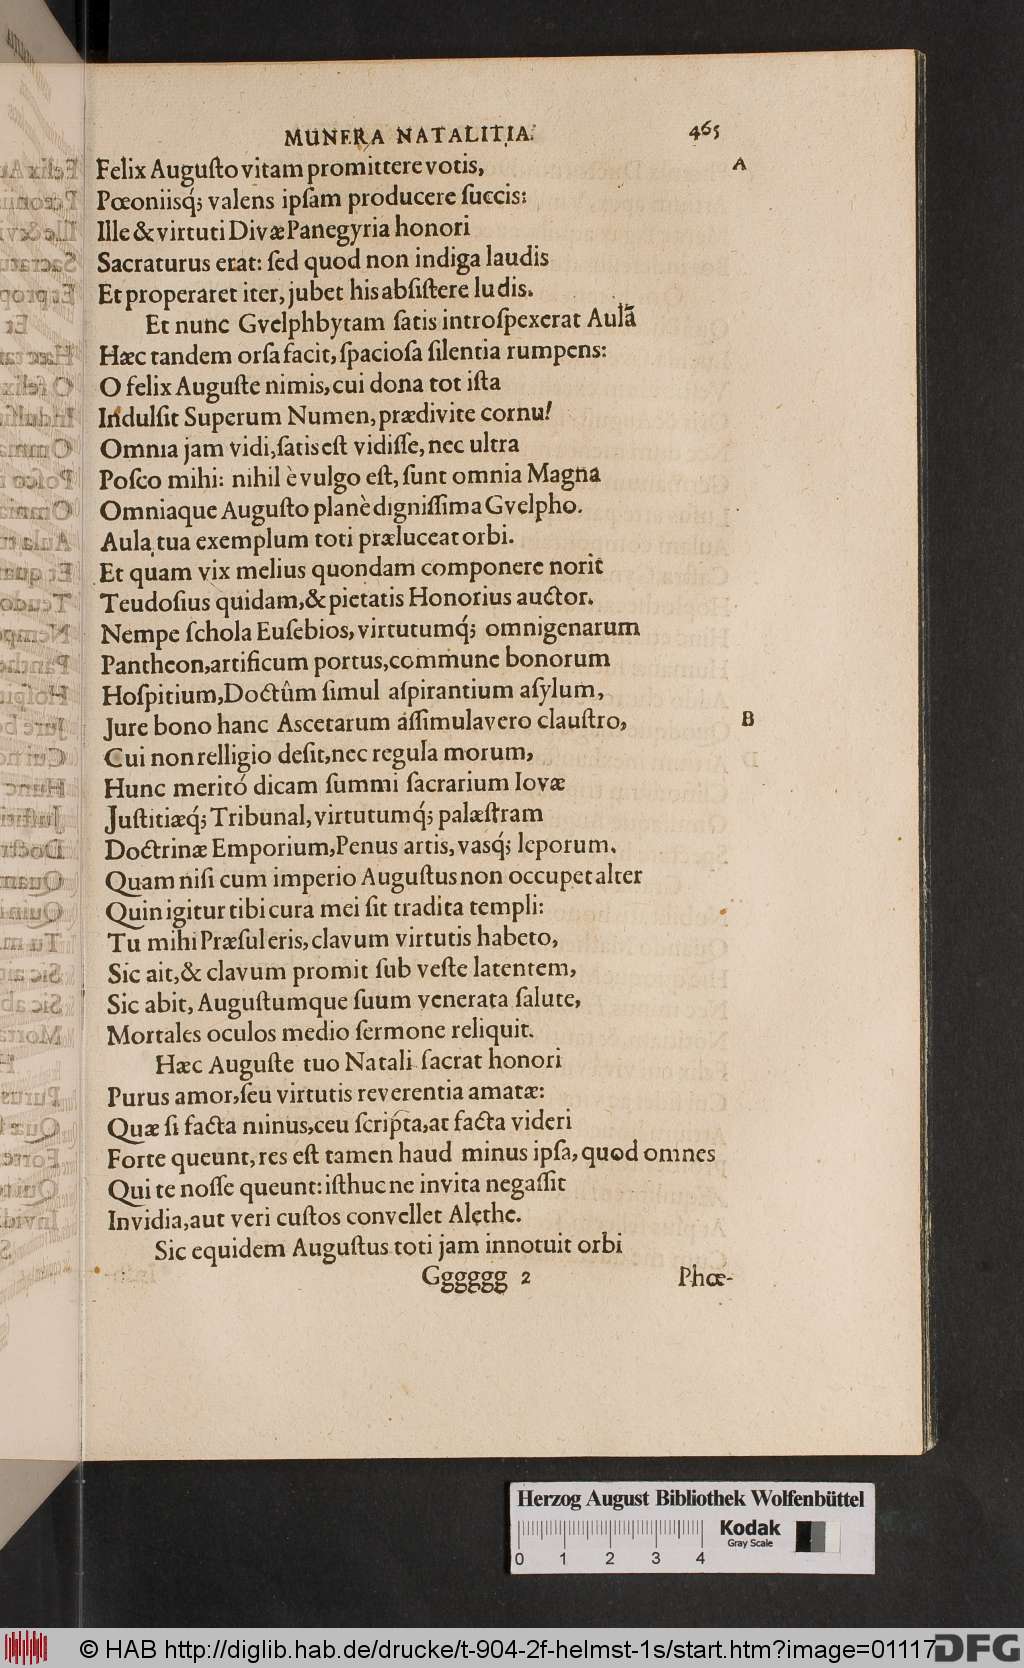 MUNERA NATALITIA. 465
Felix Auguſto vitam promittere votis, A
Pœoniisq́; valens ipſam producere ſuccis:
Ille & virtuti Divæ Panegyria honori
Sacraturus erat: ſed quod non indiga laudis
Et properaret iter, jubet his abſiſtere ludis.
Et nunc Gvelphbytam ſatis introſpexerat Aulã
Hæc tandem orſa facit, ſpacioſa ſilentia rumpens:
O felix Auguſte nimis, cui dona tot iſta
Indulſit Superum Numen, prædivite cornu!
Omnia jam vidi, ſatis eſt vidiſſe, nec ultra
Poſco mihi: nihil è vulgo eſt, ſunt omnia Magna
Omniaque Auguſto planè digniſſima Gvelpho.
Aula tua exemplum toti præluceat orbi.
Et quam vix melius quondam componere norit
Teudoſius quidam, & pietatis Honorius auctor.
Nempe ſchola Euſebios, virtutumq́; omnigenarum
Pantheon, artificum portus, commune bonorum
Hoſpitium, Doctûm ſimul aſpirantium aſylum,
Jure bono hanc Ascetarum aſſimulavero clauſtro, B
Cui non relligio deſit, nec regula morum,
Hunc meritó dicam ſummi ſacrarium Iovæ
Juſtitiæq́; Tribunal, virtutumq́; palæſtram
Doctrinæ Emporium, Penus artis, vasq́; leporum.
Quam niſi cum imperio Auguſtus non occupet alter
Quin igitur tibi cura mei ſit tradita templi:
Tu mihi Præſul eris, clavum virtutis habeto,
Sic ait, & clavum promit ſub veſte latentem,
Sic abit, Auguſtumque ſuum venerata ſalute,
Mortales oculos medio ſermone reliquit.
Hæc Auguſte tuo Natali ſacrat honori
Purus amor, ſeu virtutis reverentia amatæ:
Quæ ſi facta minus, ceu ſcripta, at facta videri
Forte queunt, res eſt tamen haud minus ipſa, quod omnes
Qui te noſſe queunt: iſthuc ne invita negaſſit
Invidia, aut veri cuſtos convellet Alethe.
Sic equidem Auguſtus toti jam innotuit orbi
Gggggg 2 Phœ-
Herzog August Bibliothek Wolfenbüttel
Kodak
Gray Scale
0 1 2 3 4
© HAB http://diglib.hab.de/drucke/t-904-2f-helmst-1s/start.htm?image=01117
DFG